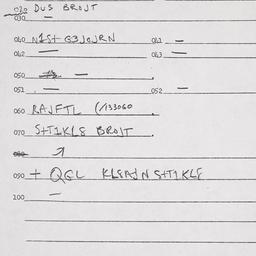 020 DUS BROJT
030 —
040 N1St G3JOJRN 041 —
042 — 043 —
050 —
051 — 052 —
060 RAJFTL (/133060
070 STT1KLE BROJT
↗
090 + QCL KLEAJN STT1KLE
100 —